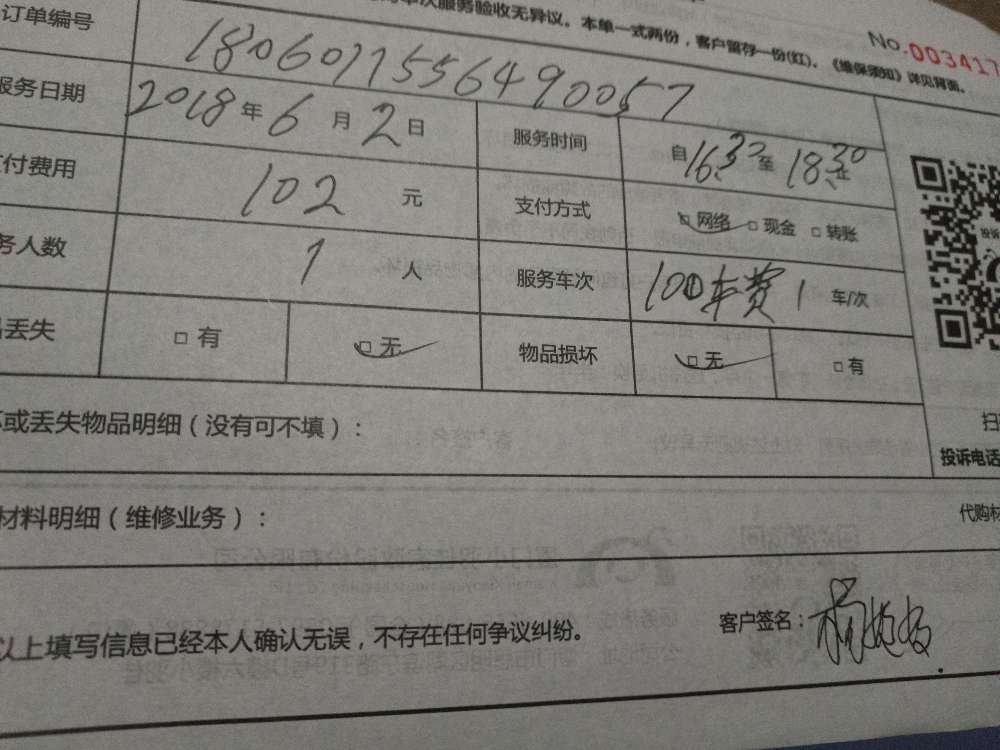 次服务验收无异议。本单一式两份，客户留存一份(红)。《维保须知》详见背面。
No.003417
订单编号 1806011556490057
服务日期 2018年6月2日 服务时间 自16:30至18:30止
付费用 102元 支付方式 □网络 □现金 □转账
务人数 1人 服务车次 100车费1车/次
丢失 □有 □无 物品损坏 □无 □有
或丢失物品明细（没有可不填）：
扫
投诉电话
材料明细（维修业务）：
代购材
以上填写信息已经本人确认无误，不存在任何争议纠纷。
客户签名：